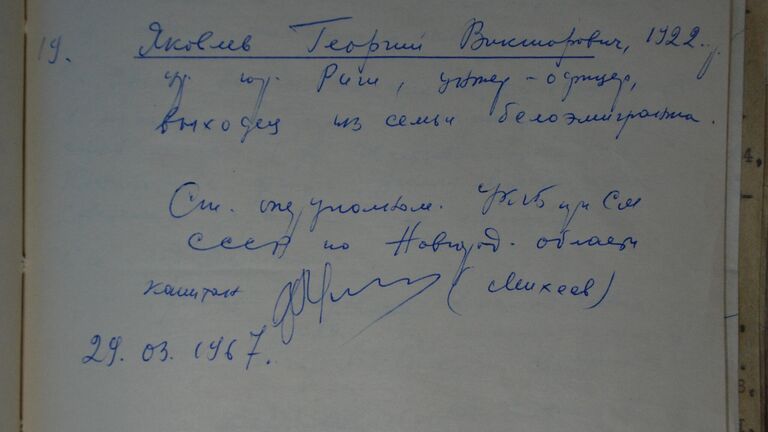 19. Яковлев Георгий Викторович, 1922 г.
ур. гор. Риги, унтер-офицер,
выходец из семьи белоэмигранта.
Ст. оперуполном. УКГБ при СМ
СССР по Новгород. области
капитан (Михеев)
29.03.1967.